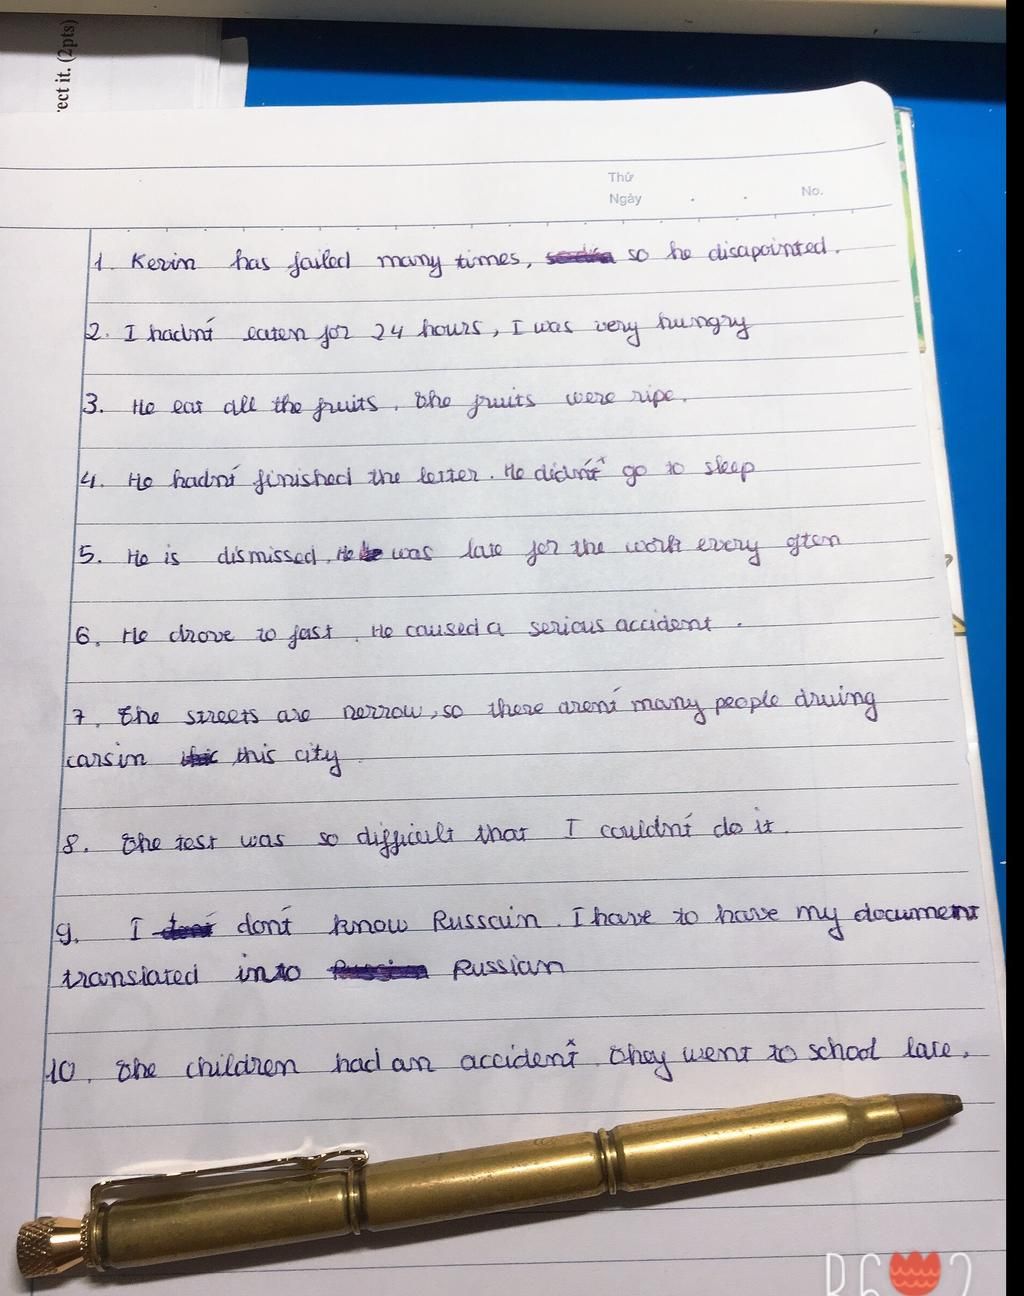 rect it. (2pts)
Thứ
Ngày . . No.
1. Kevin has failed many times, so he disapointed.
2. I hadn't eaten for 24 hours, I was very hungry
3. He eat all the fruits. the fruits were ripe.
4. He hadn't finished the letter. He didn't go to sleep
5. He is dismissed. He was late for the work every often
6. He drove to fast. He caused a serious accident.
7. the streets are nerrow, so there aren't many people driving
cars in this city
8. the test was so difficult that I couldn't do it.
9. I don't know Russain. I have to have my document
translated into Russian
10. the children had an accident. they went to school late.